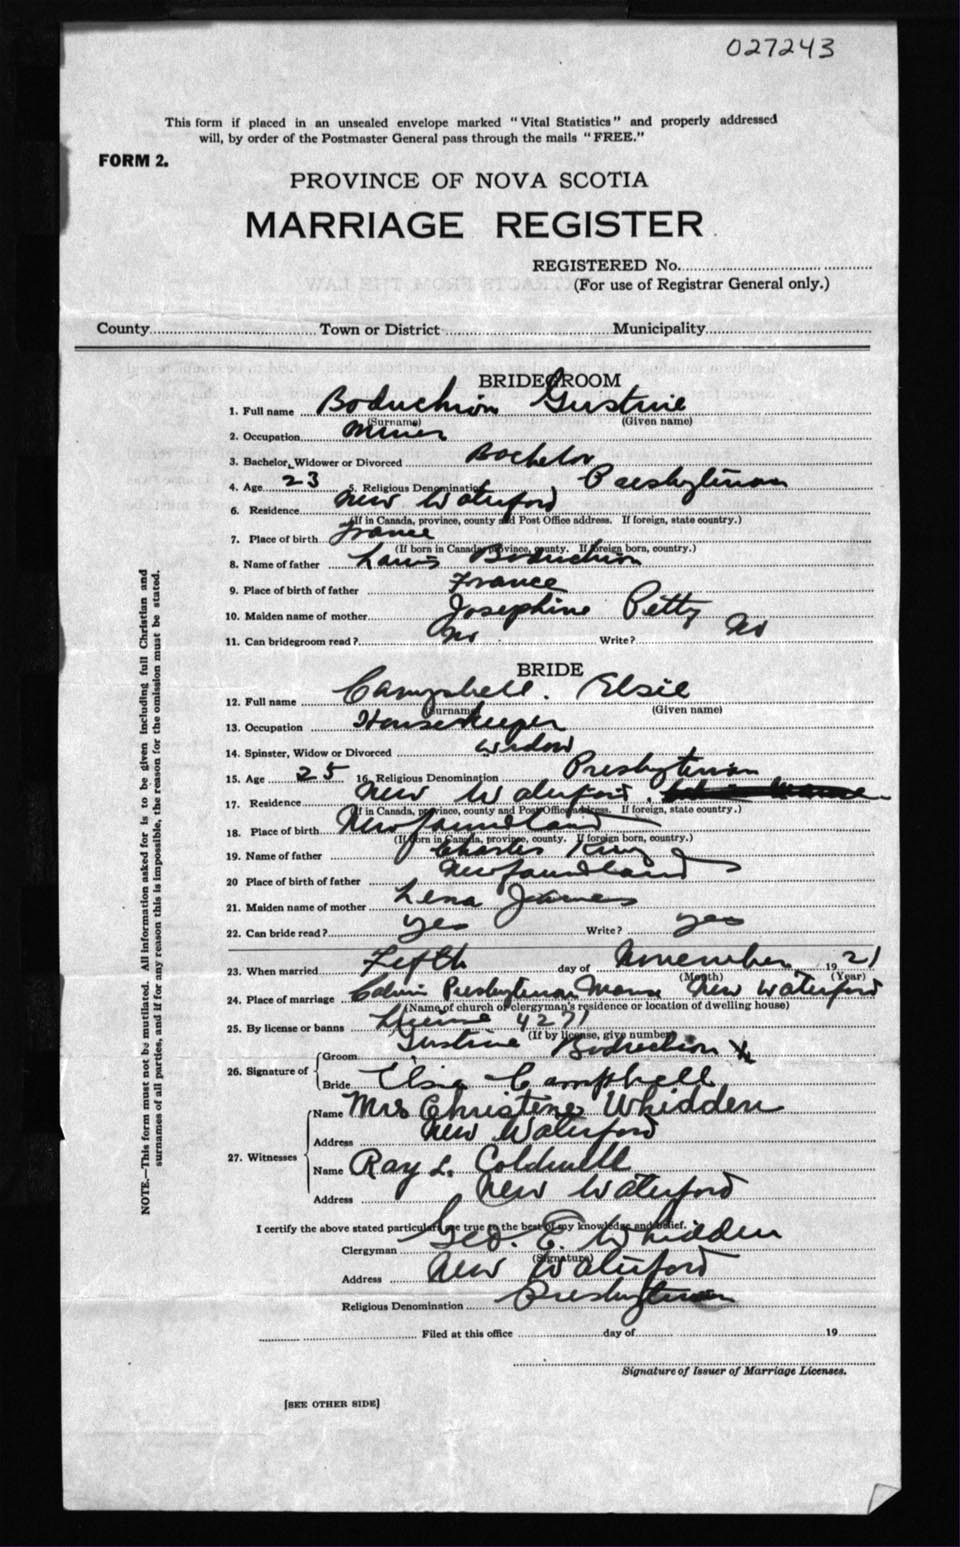 027243
This form if placed in an unsealed envelope marked "Vital Statistics" and properly addressed
will, by order of the Postmaster General pass through the mails "FREE."
FORM 2.
PROVINCE OF NOVA SCOTIA
MARRIAGE REGISTER
REGISTERED No.
(For use of Registrar General only.)
County Town or District Municipality
BRIDEGROOM
1. Full name Boduchion Gustine
(Surname) (Given name)
2. Occupation Miner
3. Bachelor, Widower or Divorced Bachelor
4. Age 23 5. Religious Denomination Presbyterian
6. Residence New Waterford
(If in Canada, province, county and Post Office address. If foreign, state country.)
7. Place of birth France
(If born in Canada, province, county. If foreign born, country.)
8. Name of father Louis Boduchion
9. Place of birth of father France
10. Maiden name of mother Josephine Petty
11. Can bridegroom read? No Write? No
BRIDE
12. Full name Campbell. Elsie
(Surname) (Given name)
13. Occupation Housekeeper
14. Spinster, Widow or Divorced Widow
15. Age 25 16. Religious Denomination Presbyterian
17. Residence New Waterford
(If in Canada, province, county and Post Office address. If foreign, state country.)
18. Place of birth Newfoundland
(If born in Canada, province, county. If foreign born, country.)
19. Name of father Charles King
20 Place of birth of father Newfoundland
21. Maiden name of mother Lena James
22. Can bride read? Yes Write? yes
23. When married Fifth day of November 1921
(Month) (Year)
24. Place of marriage Calvin Presbyterian Manse New Waterford
(Name of church or clergyman's residence or location of dwelling house)
25. By license or banns License 4271
(If by license, give number)
26. Signature of Groom Gustine Boduchion X
Bride Elsie Campbell
27. Witnesses Name Mrs Christene Whidden
Address New Waterford
Name Ray L. Coldwell
Address New Waterford
I certify the above stated particulars are true to the best of my knowledge and belief.
Clergyman Geo. E. Whidden
(Signature)
Address New Waterford
Religious Denomination Presbyterian
Filed at this office day of 19
Signature of Issuer of Marriage Licenses.
[SEE OTHER SIDE]
NOTE.—This form must not be mutilated. All information asked for is to be given including full Christian and
surnames of all parties, and if for any reason this is impossible, the reason for the omission must be stated.